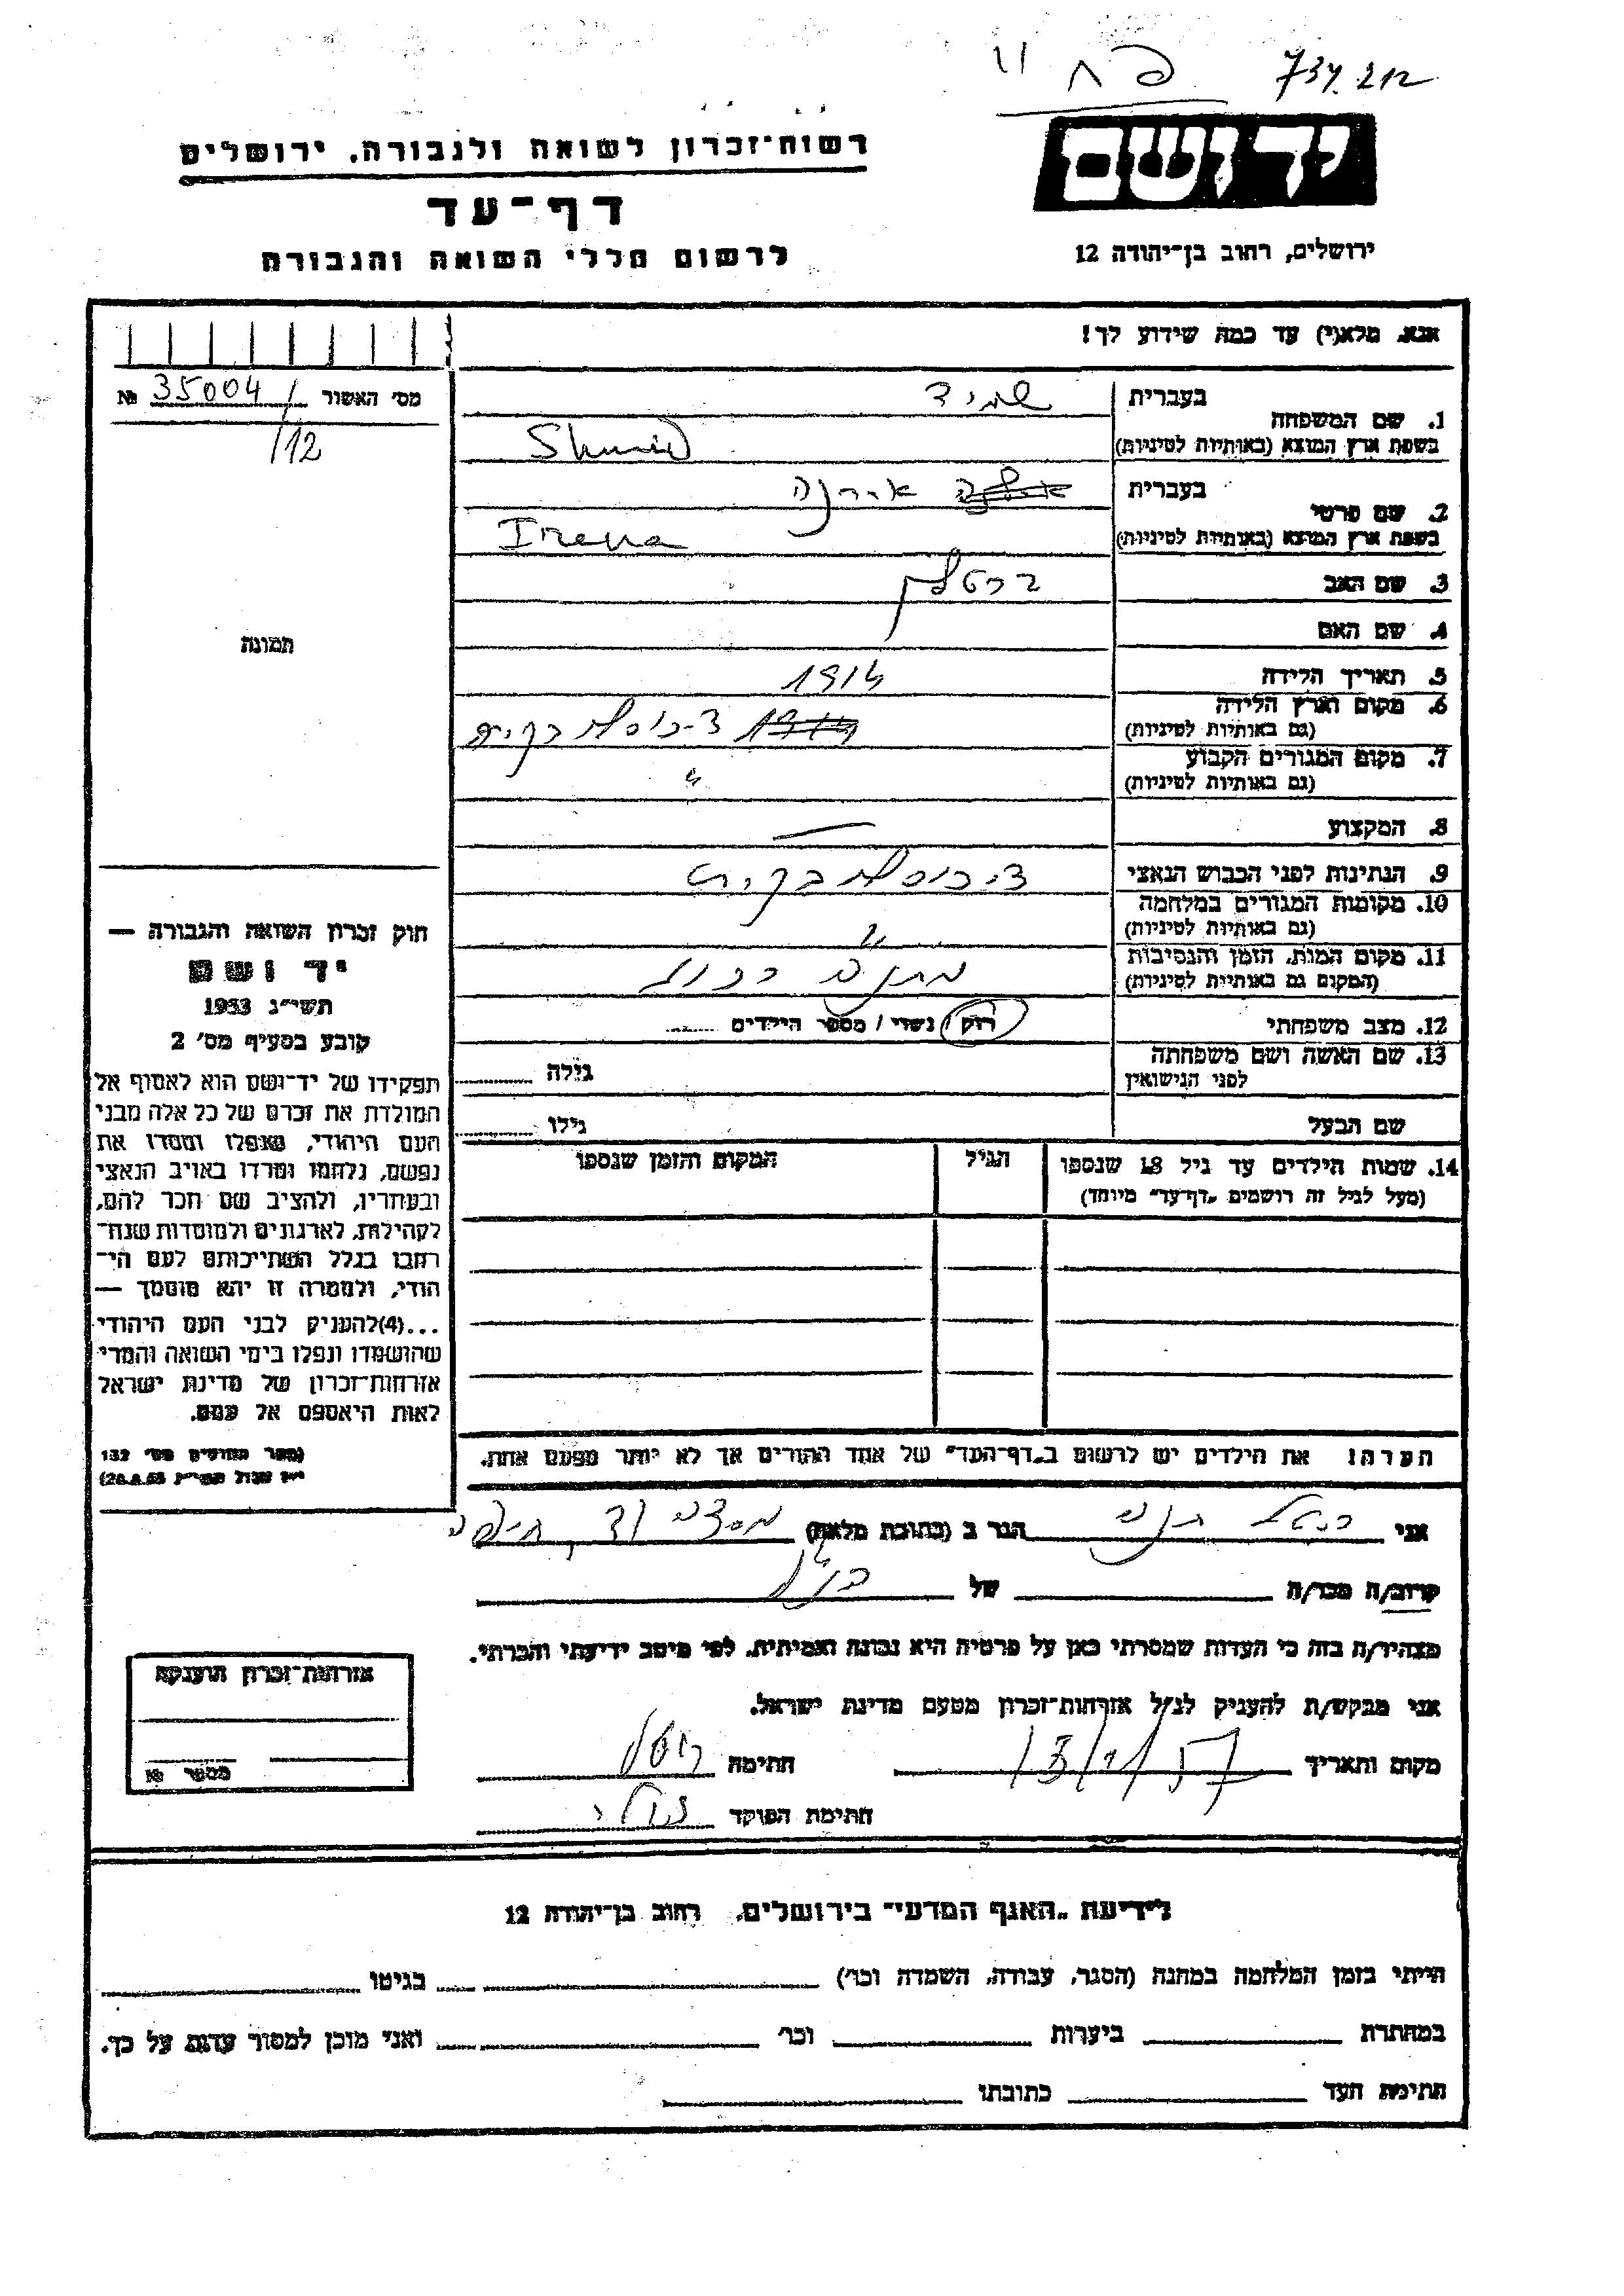 737.212
יד ושם
רשות־זכרון לשואה ולגבורה, ירושלים
דף־עד
לרשום חללי השואה והגבורה
ירושלים, רחוב בן־יהודה 12
אנא, מלא(י) עד כמה שידוע לך!
מס' האשור № 35004/
/12
1. שם המשפחה
בעברית שמיד
בשפת ארץ המוצא (באותיות לטיניות) Shmid
2. שם פרטי
בעברית אירנה
בשפת ארץ המוצא (באותיות לטיניות) Irena
3. שם האב
4. שם האם
תמונה
5. תאריך הלידה 1914
6. מקום וארץ הלידה
(גם באותיות לטיניות) צ'כוסלובקיה
7. מקום המגורים הקבוע
(גם באותיות לטיניות) "
8. המקצוע —
9. הנתינות לפני הכבוש הנאצי צ'כוסלובקית
10. מקומות המגורים במלחמה
(גם באותיות לטיניות) "
11. מקום המות, הזמן והנסיבות
(המקום גם באותיות לטיניות)
12. מצב משפחתי רוק / נשוי / מספר הילדים
13. שם האשה ושם משפחתה
לפני הנישואין גילה
שם הבעל גילו
14. שמות הילדים עד גיל 18 שנספו הגיל המקום והזמן שנספו
(מעל לגיל זה רושמים „דף־עד" מיוחד)
חוק זכרון השואה והגבורה —
יד ושם
תשי"ג 1953
קובע בסעיף מס' 2
תפקידו של יד־ושם הוא לאסוף אל
המולדת את זכרם של כל אלה מבני
העם היהודי, שנפלו ומסרו את
נפשם, נלחמו ומרדו באויב הנאצי
ובעוזריו, ולהציב שם וזכר להם,
לקהילות, לארגונים ולמוסדות שנח־
רבו בגלל השתייכותם לעם הי־
הודי, ולמטרה זו יהא מוסמך —
...(4)להעניק לבני העם היהודי
שהושמדו ונפלו בימי השואה והמרי
אזרחות־זכרון של מדינת ישראל
לאות היאספם אל עמם.
(ספר החוקים מס' 132
י"ז אלול תשי"ג 28.8.53)
הערה: את הילדים יש לרשום ב„דף־העד" של אחד ההורים אך לא יותר מפעם אחת.
אני הגר ב (כתובת מלאה) חיפה
קרוב/ה מכר/ה של
מצהיר/ה בזה כי העדות שמסרתי כאן על פרטיה היא נכונה ואמיתית, לפי מיטב ידיעתי והכרתי.
אני מבקש/ת להעניק לנ"ל אזרחות־זכרון מטעם מדינת ישראל.
מקום ותאריך 13/1/57 חתימה
חתימת הפוקד
אזרחות־זכרון הוענקה
מספר №
לידיעת „האגף המדעי" בירושלים, רחוב בן־יהודה 12
הייתי בזמן המלחמה במחנה (הסגר, עבודה, השמדה וכו') בגיטו
במחתרת ביערות וכו' ואני מוכן למסור עדות על כך.
חתימת העד כתובתו